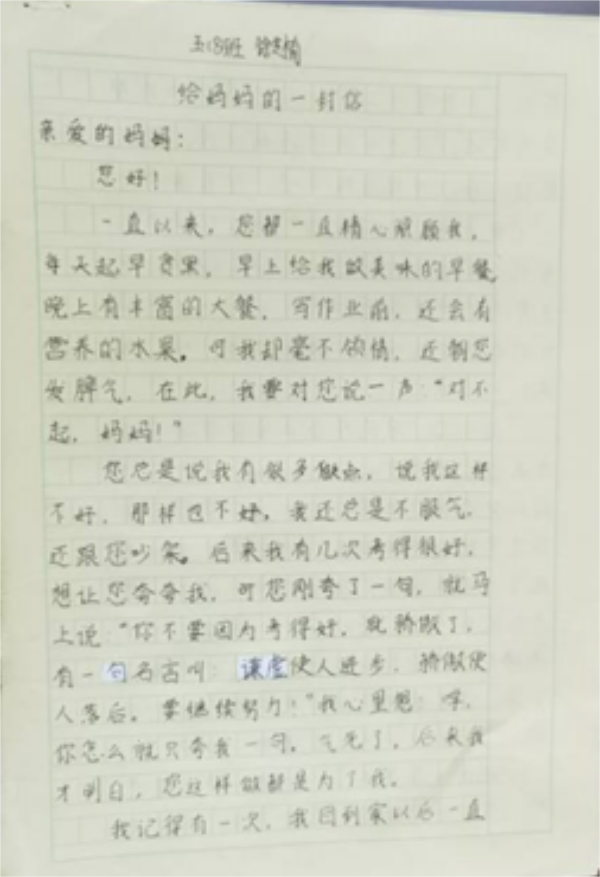 五(8)班
给妈妈的一封信
亲爱的妈妈:
您好!
一直以来,您都一直精心照顾我,
每天起早贪黑,早上给我做美味的早餐,
晚上有丰富的大餐,写作业前,还会有
营养的水果。可我却毫不领情,还朝您
发脾气,在此,我要对您说一声:“对不
起,妈妈!”
您总是说我有很多缺点,说我这样
不好,那样也不好,我还总是不服气,
还跟您吵架。后来我有几次考得很好,
想让您夸夸我,可您刚夸了一句,就马
上说:“你不要因为考得好,就骄傲了,
有一句名言叫:谦虚使人进步,骄傲使
人落后。要继续努力!”我心里想:哼,
你怎么就只夸我一句。气死了,后来我
才明白,您这样做都是为了我。
我记得有一次,我回到家以后一直